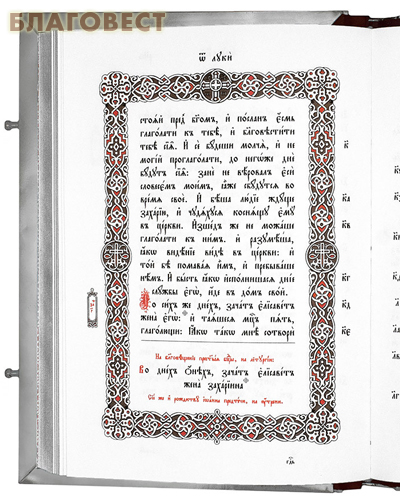 БЛАГОВЕСТ
Ѿ лꙋкѝ
стоѧ́й пред̾ бг҃омъ, и҆ по́сланъ є҆́смь
глаго́лати къ тебѣ̀, и҆ бл҃говѣсти́ти
тебѣ̀ сїѧ̑. И҆ сѐ бꙋ́деши молчѧ̀, и҆ не
могі́й проглаго́лати, до негѡ́же днѐ
бꙋ́дꙋтъ сїѧ̑: занѐ не вѣ́ровалъ є҆сѝ
словесє́мъ мои̑мъ, ꙗ҆̀же сбꙋ́дꙋтсѧ во
вре́мѧ своѐ. И҆ бѣ́ша лю́дїе ждꙋ́ще
заха́рїи, и҆ чꙋдѧ́хꙋсѧ коснѧ́щꙋ є҆мꙋ̀
въ це́ркви. И҆зше́дъ же не можа́ше
глаго́лати къ ни̑мъ, и҆ разꙋмѣ́ша,
ꙗ҆́кѡ видѣ́нїе ви́дѣ въ це́ркви: и҆
то́й бѣ̀ помава́ѧ и҆̀мъ, и҆ пребыва́ше
нѣ́мъ. И҆ бы́сть ꙗ҆́кѡ и҆спо́лнишасѧ дні́е
слꙋ́жбы є҆гѡ̀, и҆́де въ до́мъ сво́й.
По си́хъ же дне́хъ зача́тъ є҆лїсаве́тъ
жена̀ є҆гѡ̀: и҆ таѧ́шесѧ мц҃ъ пѧ́ть,
глаго́лющи: Ꙗ҆́кѡ та́кѡ мнѣ̀ сотворѝ
На бл҃говѣ́щенїе прест҃ы́ѧ бц҃ы, на лїтꙋргі́и:
Во дне́хъ ѻ҆́нѣхъ, зача́тъ є҆лїсаве́тъ
жена̀ заха́рїина
Сїѐ же и҆ рождествꙋ̀ і҆ѡа́нна прⷣте́чи, на ᲂу҆́трени.
к҃г
к҃д
к҃є